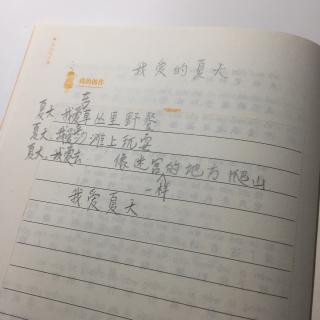 我爱的夏天
我的创作
夏天,我爱草丛里野餐
夏天,我爱沙滩上玩耍
夏天,我爱去 像迷宫的地方爬山
一样
我爱夏天